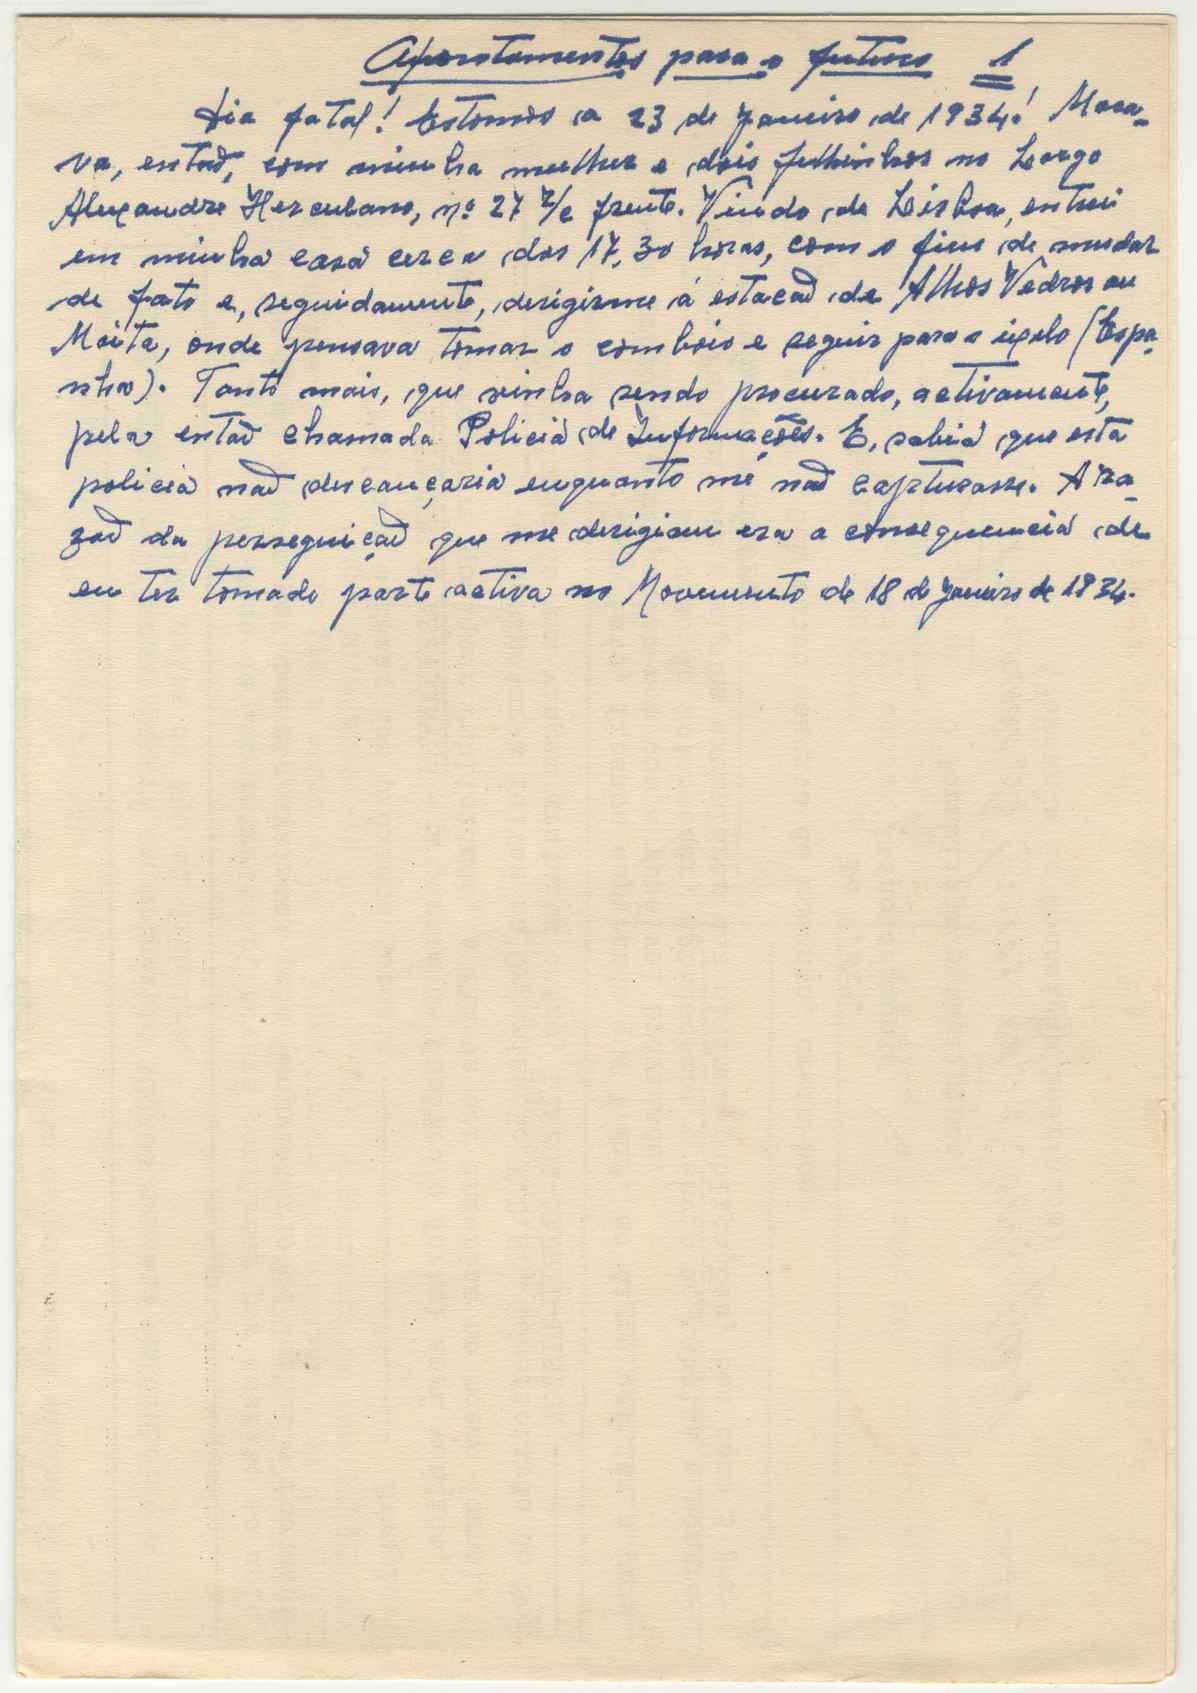 Apontamentos para o futuro 1
Dia fatal! Estomos a 23 de Janeiro de 1934! Mora-
va, entaõ, com minha mulher e dois filhinhos no Largo
Alexandre Herculano, nº 27 r/c frente. Vindo de Lisboa, entrei
em minha casa cerca das 17,30 horas, com o fim de mudar
de fato e, seguidamente, derigirme á estacaõ de Alhos Vedros ou
Moita, onde pensava tomar o comboio e seguir para o ixelo (Espa-
nha). Tanto mais, que vinha sendo procurado, activamente,
pela entaõ chamada Policia de Informações. E, sabia que esta
policia naõ descançaria enquanto me naõ capturasse. A ra-
zaõ da perseguiçaõ que me derigiam era a consequencia de
eu ter tomado parte activa no Movemento de 18 de Janeiro de 1934.